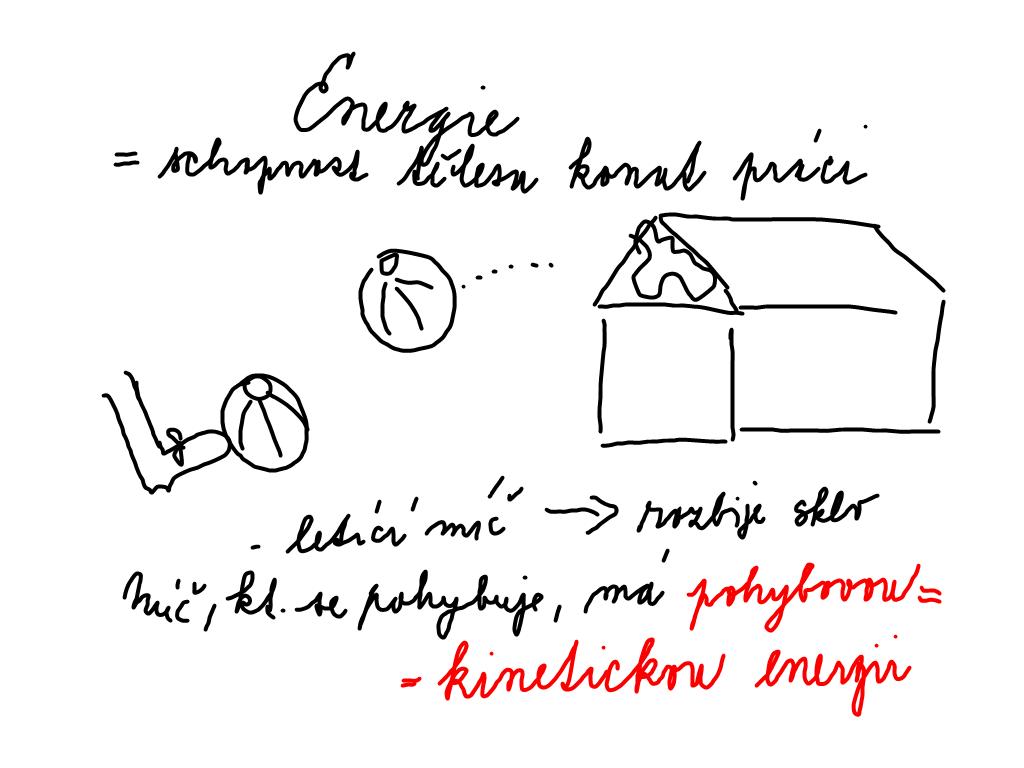 Energie
= schopnost tělesa konat práci
- letící míč → rozbije sklo
Míč, kt. se pohybuje, má pohybovou =
= kinetickou energii